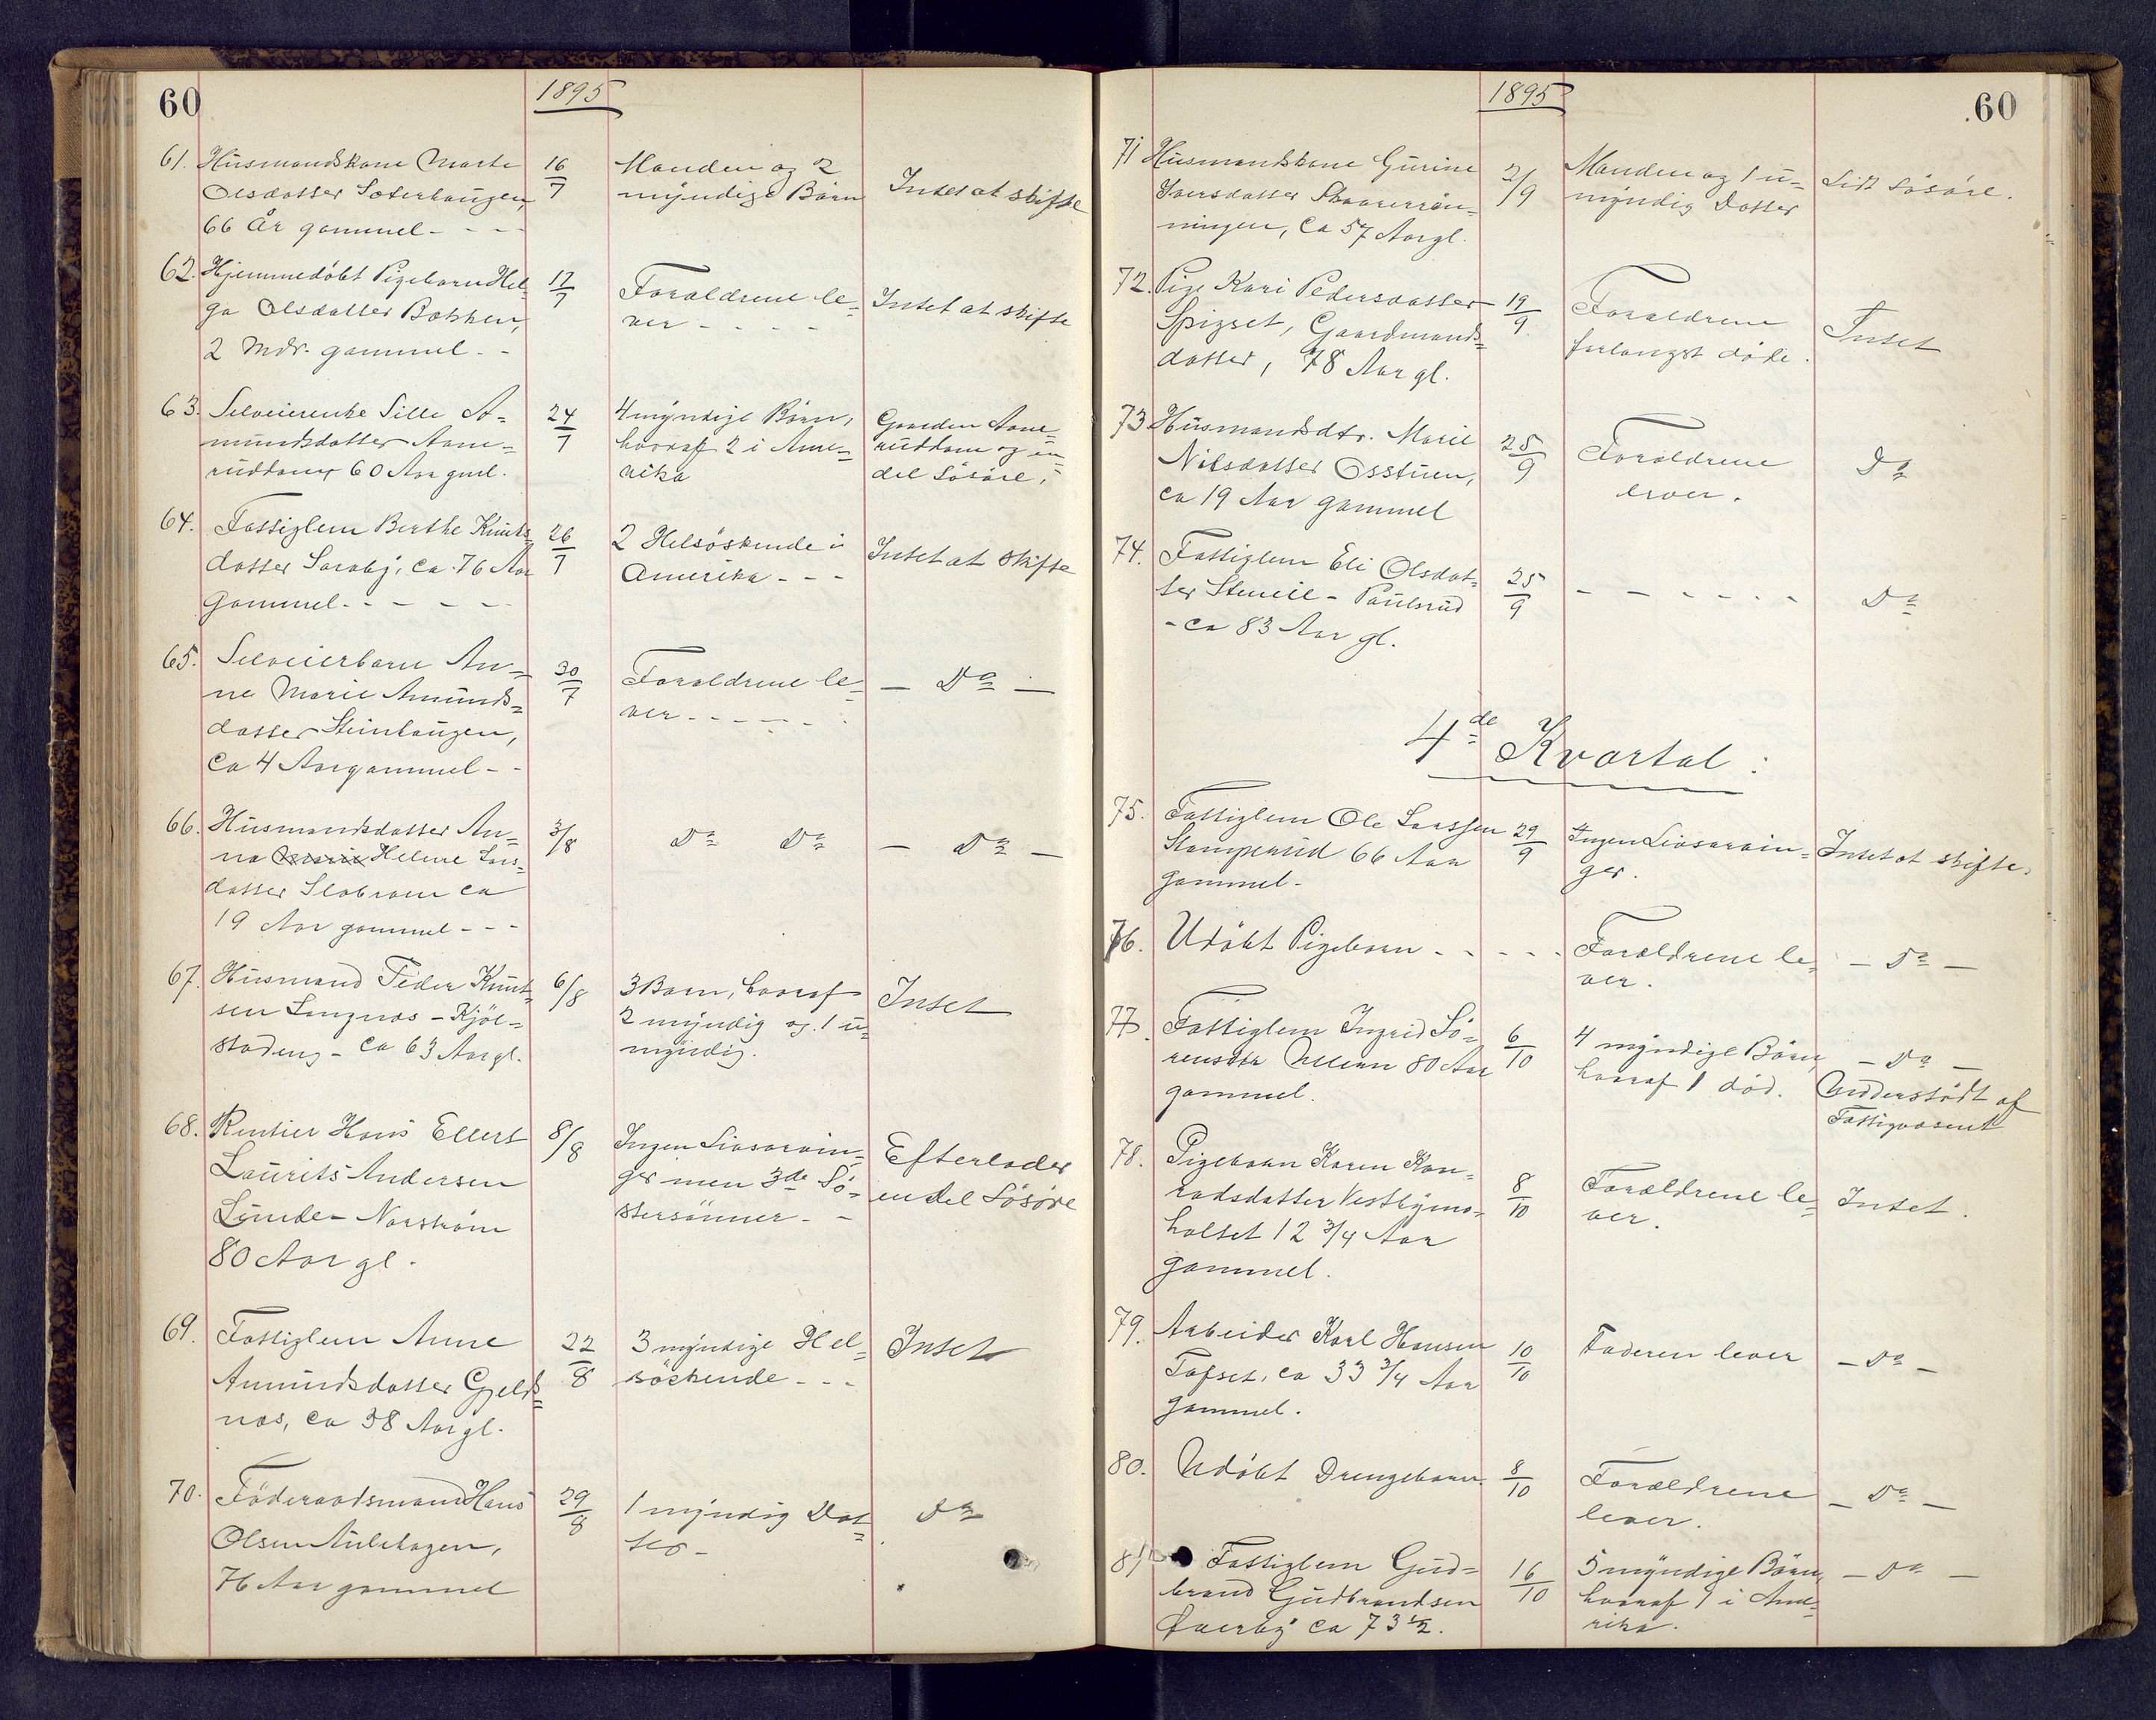 60
1895
61. Husmandskone Marte
Olsdatter Sæterhaugen,
66 År gammel - - -
16/7
Manden og 2
myndige Børn
Intet at skifte
62. Hjemmedøbt Pigebarn Hel-
ga Olsdatter Bakken,
2 Mdr. gammel - -
17/7
Forældrene le-
ver - - - -
Intet at skifte
63. Selveierenke Sille A-
mundsdatter Aame-
ruddam, 60 Aar gml.
24/7
4 myndige Børn,
hvoraf 2 i Ame-
rika
Gaarden Aame-
ruddam og en
del Løsøre.
64. Fattiglem Berthe Knuts-
datter Saraby, ca. 76 Aar
gammel - - - - -
26/7
2 Helsøskende i
Amerika - - -
Intet at skifte
65. Selveierbarn An-
ne Marie Amunds-
datter Steinhaugen,
ca 4 Aar gammel - -
30/7
Forældrene le-
ver - - - - -
- Do -
66. Husmandsdatter An-
na Marie Helene Lars-
datter ca
19 Aar gammel - - -
3/8
Do Do
- Do -
67. Husmand Peder Knut-
sen Langnæs - Kjøl-
stadeng - ca 63 Aar gl.
6/8
3 Barn, hvoraf
2 myndig og 1 u-
myndig.
Intet
68. Rentier Hans Ellert
Laurits Andersen
Lunde - Norstrøm
80 Aar gl.
8/8
Ingen Livsarvin-
ger men 3de Sø-
stersønner - -
Efterlader
en del Løsøre
69. Fattiglem Anne
Amundsdatter Gjelds-
næs, ca 38 Aar gl.
22/8
3 myndige Hel-
søskende - - -
Intet
70. Føderaadsmand Hans
Olsen Aulehagen,
76 Aar gammel
29/8
1 myndig Dat-
ter -
Do
1895
60
71 Husmandskone Gurine
Iversdatter Skaarerøn-
ningen, ca 57 Aar gl.
2/9
Manden og 1 u-
myndig Datter
Lidt Løsøre.
72. Pige Kari Pedersdatter
Spigset, Gaardmands-
datter, 78 Aar gl.
19/9.
Forældrene
forlængst døde.
Intet
73. Husmandsdtr. Marie
Nilsdatter Osstuen,
ca 19 Aar gammel
25/9
Forældrene
lever.
Do
74. Fattiglem Eli Olsdat-
ter - Paulsrud
- ca 83 Aar gl.
25/9
- - - - - -
Do
4de Kvartal:
75. Fattiglem Ole Larssen
Stamperud 66 Aar
gammel -
29/9
Ingen Livsarvin-
ger.
Intet at skifte.
76. Udøbt Pigebarn - - - -
Forældrene le-
ver.
- Do -
77. Fattiglem Ingrid Sø-
rensdtr 80 Aar
gammel.
6/10
4 myndige Børn,
hvoraf 1 død.
- Do -
Understødt af
Fattigvæsenet
78. Pigebarn Karen Kon-
radsdatter Vestbymo-
holset 12 3/4 Aar
gammel.
8/10
Forældrene le-
ver.
Intet.
79. Arbeider Karl Hansen
Tofset, ca 33 3/4 Aar
gammel.
10/10
Faderen lever
- Do -
80. Udøbt Drengebarn
8/10
Forældrene
lever.
- Do -
81 Fattiglem Gud-
brand Gudbrandsen
Øverby ca 73 1/2.
16/10
5 myndige Børn,
hvoraf 1 i Ame-
rika.
- Do -